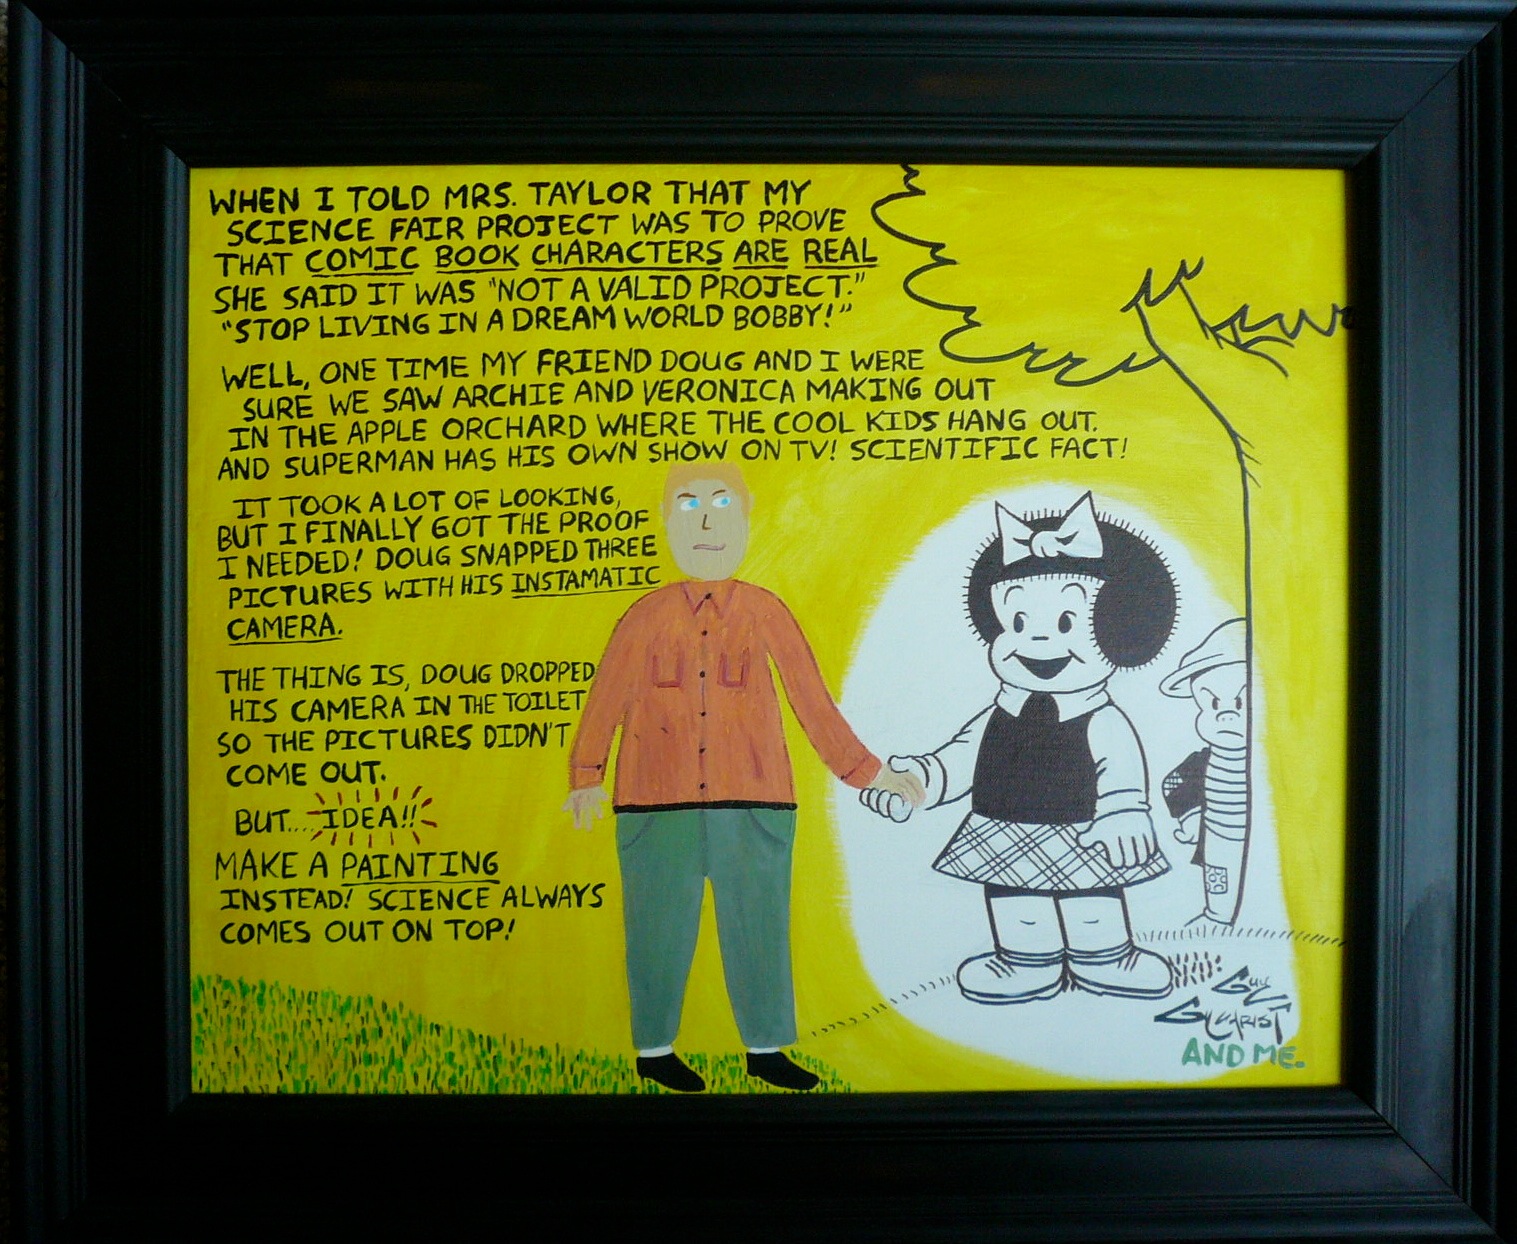 WHEN I TOLD MRS. TAYLOR THAT MY
SCIENCE FAIR PROJECT WAS TO PROVE
THAT COMIC BOOK CHARACTERS ARE REAL
SHE SAID IT WAS "NOT A VALID PROJECT."
"STOP LIVING IN A DREAM WORLD BOBBY!"
WELL, ONE TIME MY FRIEND DOUG AND I WERE
SURE WE SAW ARCHIE AND VERONICA MAKING OUT
IN THE APPLE ORCHARD WHERE THE COOL KIDS HANG OUT.
AND SUPERMAN HAS HIS OWN SHOW ON TV! SCIENTIFIC FACT!
IT TOOK A LOT OF LOOKING,
BUT I FINALLY GOT THE PROOF
I NEEDED! DOUG SNAPPED THREE
PICTURES WITH HIS INSTAMATIC
CAMERA.
THE THING IS, DOUG DROPPED
HIS CAMERA IN THE TOILET
SO THE PICTURES DIDN'T
COME OUT.
BUT.... IDEA!!
MAKE A PAINTING
INSTEAD! SCIENCE ALWAYS
COMES OUT ON TOP!
GUY
GILCHRIST
AND ME.